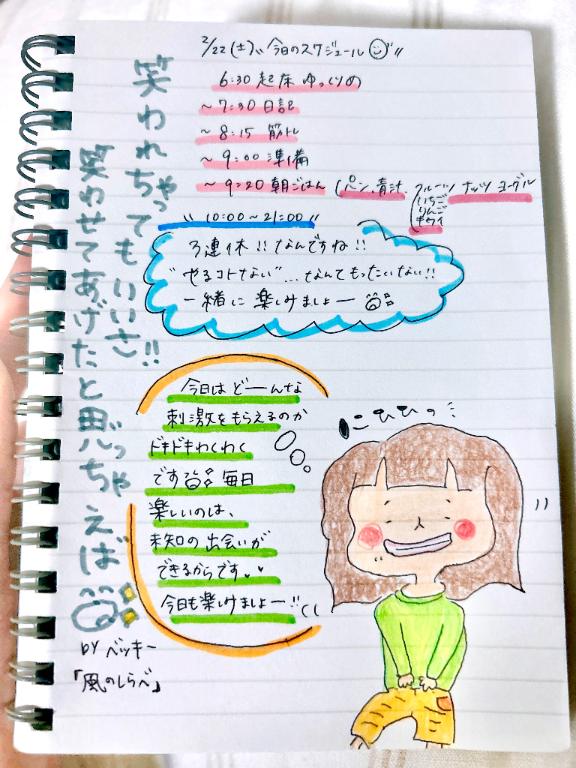 2/22(土)〃今日のスケジュール〃
6:30 起床 ゆっくりめ
～7:30 日記
～8:15 筋トレ
～9:00 準備
～9:20 朝ごはん (パン、青汁、フルーツ ナッツ ヨーグル
いちご
りんご
キウイ
〃10:00～21:00〃
3連休!!なんですね!!
"やるコトない"...なんてもったいない!!
一緒に楽しみましょー
笑われちゃってもいいさ!!
笑わせてあげたと思っちゃえば
by ベッキー
「風のしらべ」
今日はどーんな
刺激をもらえるのか
ドキドキわくわく
です 毎日
楽しいのは、
未知の出会いが
できるからです
今日も楽しみましょー!!
にひひっ